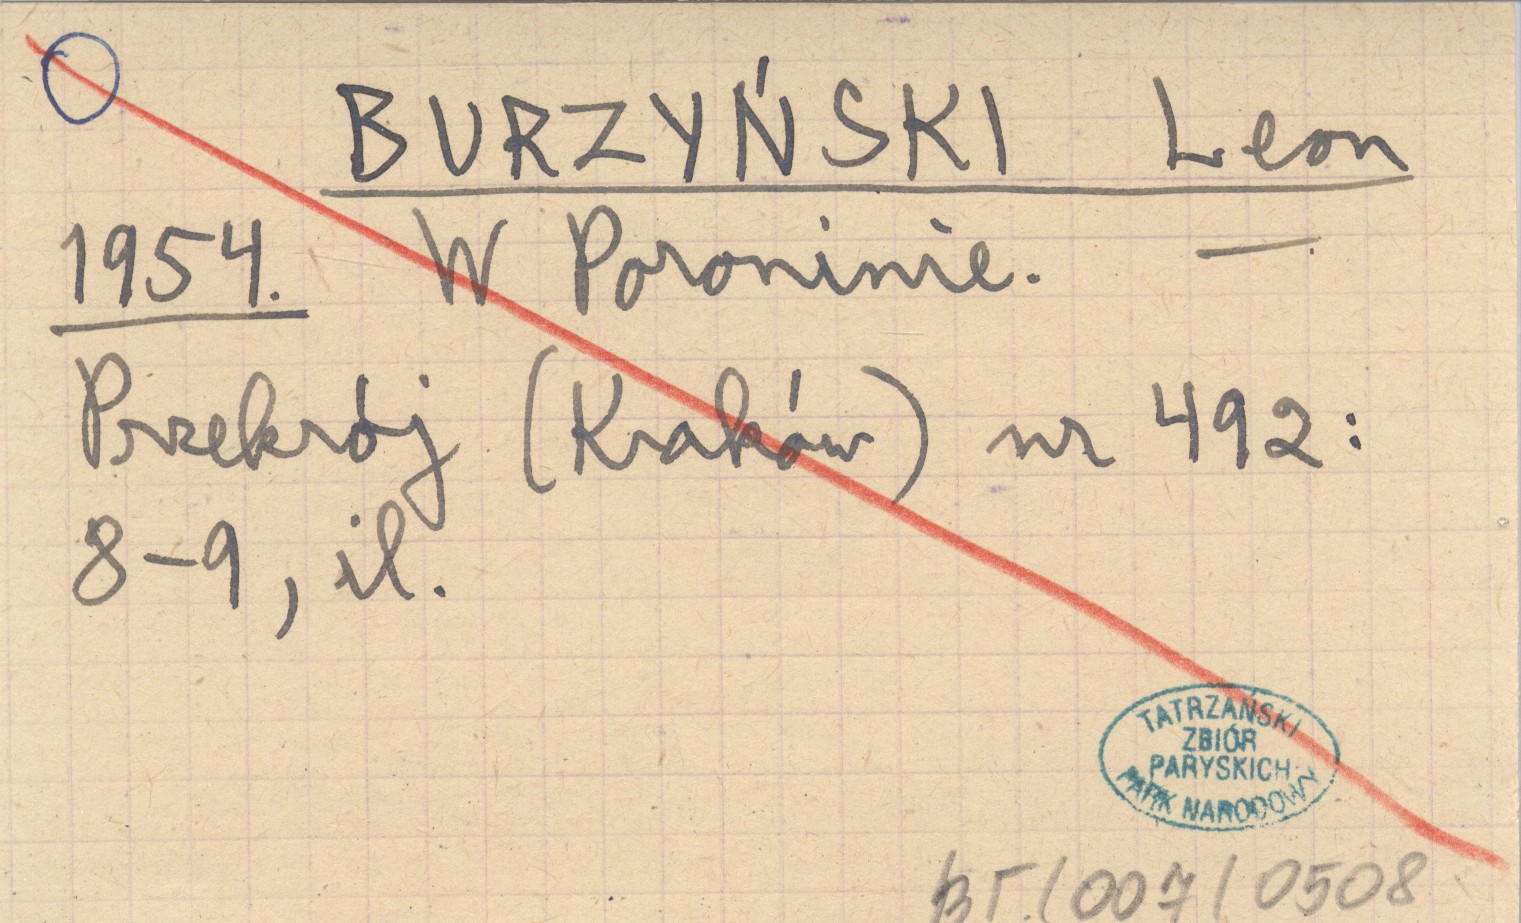 BURZYŃSKI Leon
1954. W Poroninie. —
Przekrój (Kraków) nr 492:
8-9, il.
TATRZAŃSKI
ZBIÓR
PARYSKICH
PARK NARODOWY
BT./007/0508